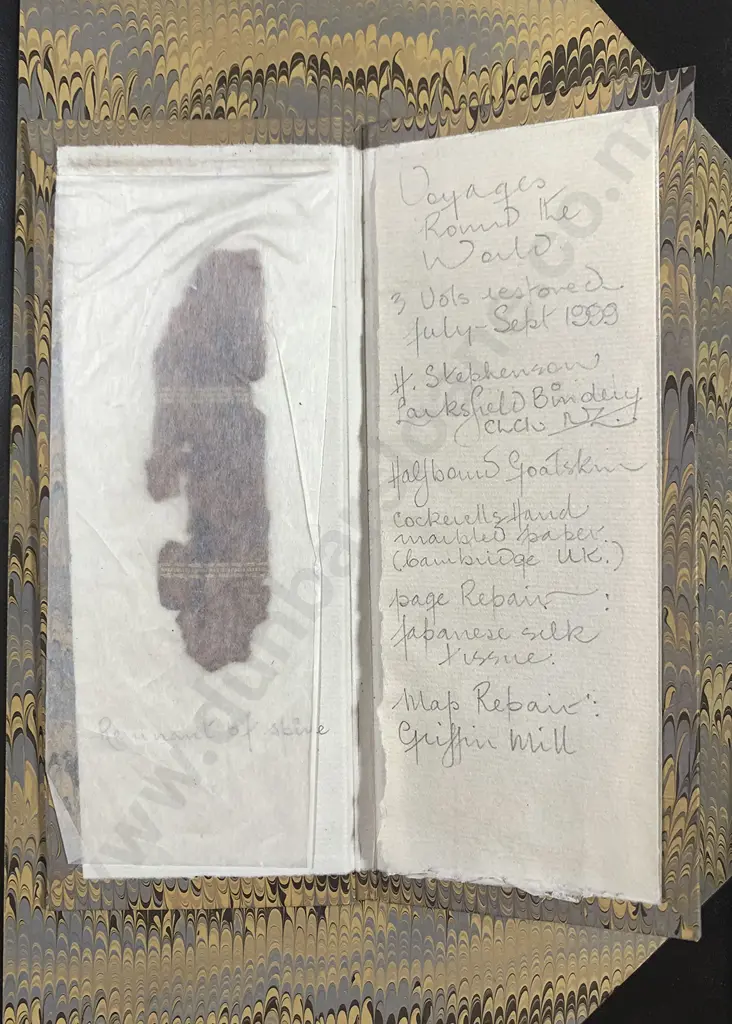 Remnant of spine
Voyages
Round the
World
3 Vols restored
July-Sept 1999
H. Stephenson
Larksfield Bindery
ChCh. NZ.
Halfbound Goatskin
Cockerells Hand
marbled paper.
(Cambridge UK.)
page Repair :
Japanese silk
tissue.
Map Repair:
Griffin Mill